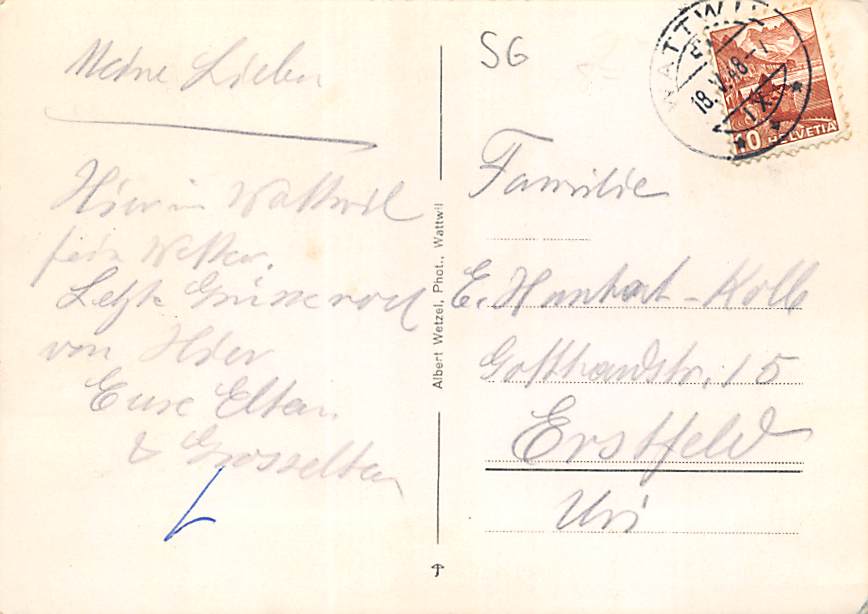 Meine Lieben
Hier in Wattwil
fein Wetter.
Letzte Grüsse
von Hier
Eure Eltern
& Grosseltern
Albert Wetzel, Phot., Wattwil
SG
WATTWIL
18.V.48
10 HELVETIA
Familie
E. - Kolb
Gotthardstr. 15
Erstfeld
Uri